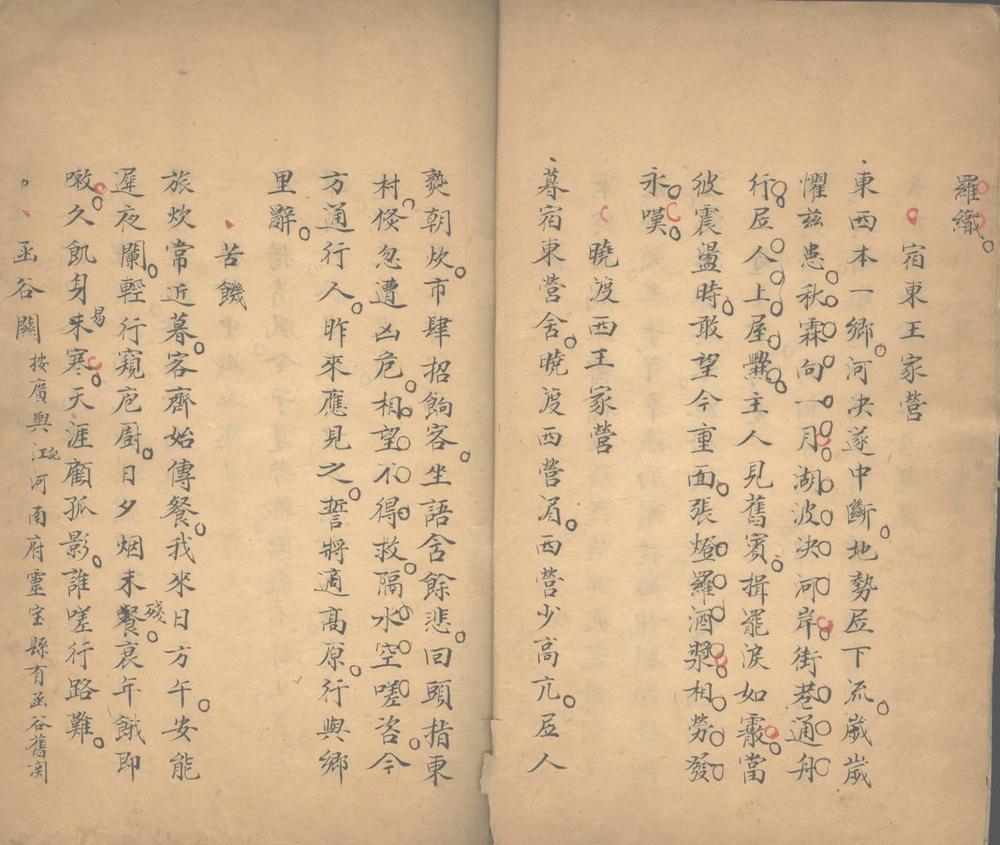 羅織
宿東王家营
東西本一鄉河决遂中斷地勢居下流歲歲
懼兹患秋霖向一月湖波决河岸街巷通舟
行居人上屋爨主人見舊賓揖罷淚如霰當
彼震盪時敢望今重面張燈羅酒漿相劳發
永嘆
曉渡西王家营
暮宿東营舍曉渡西营眉西营少高亢居人
藝朝炊市肆招餉客坐語舍餘悲回頭指東
村倏忽遭凶危相望不得救隔水空嗟咨今
方通行人昨來應見之誓將適高原行與鄉
里辭
苦饑
旅炊常近暮客齋始傳餐我來日方午安能
遲夜闌輕行窺庖廚日夕烟未餐殘衰年餓即
嗽久飢身未易寒天涯顧孤影誰嗟行路難
函谷關 按廣輿記江河南府靈宝縣有函谷舊関